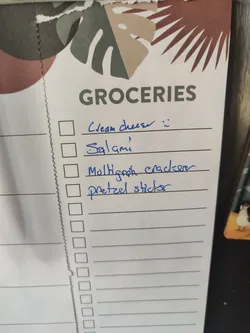 GROCERIES
Cream cheese :)
Salami
Multigrain crackers
pretzel sticks